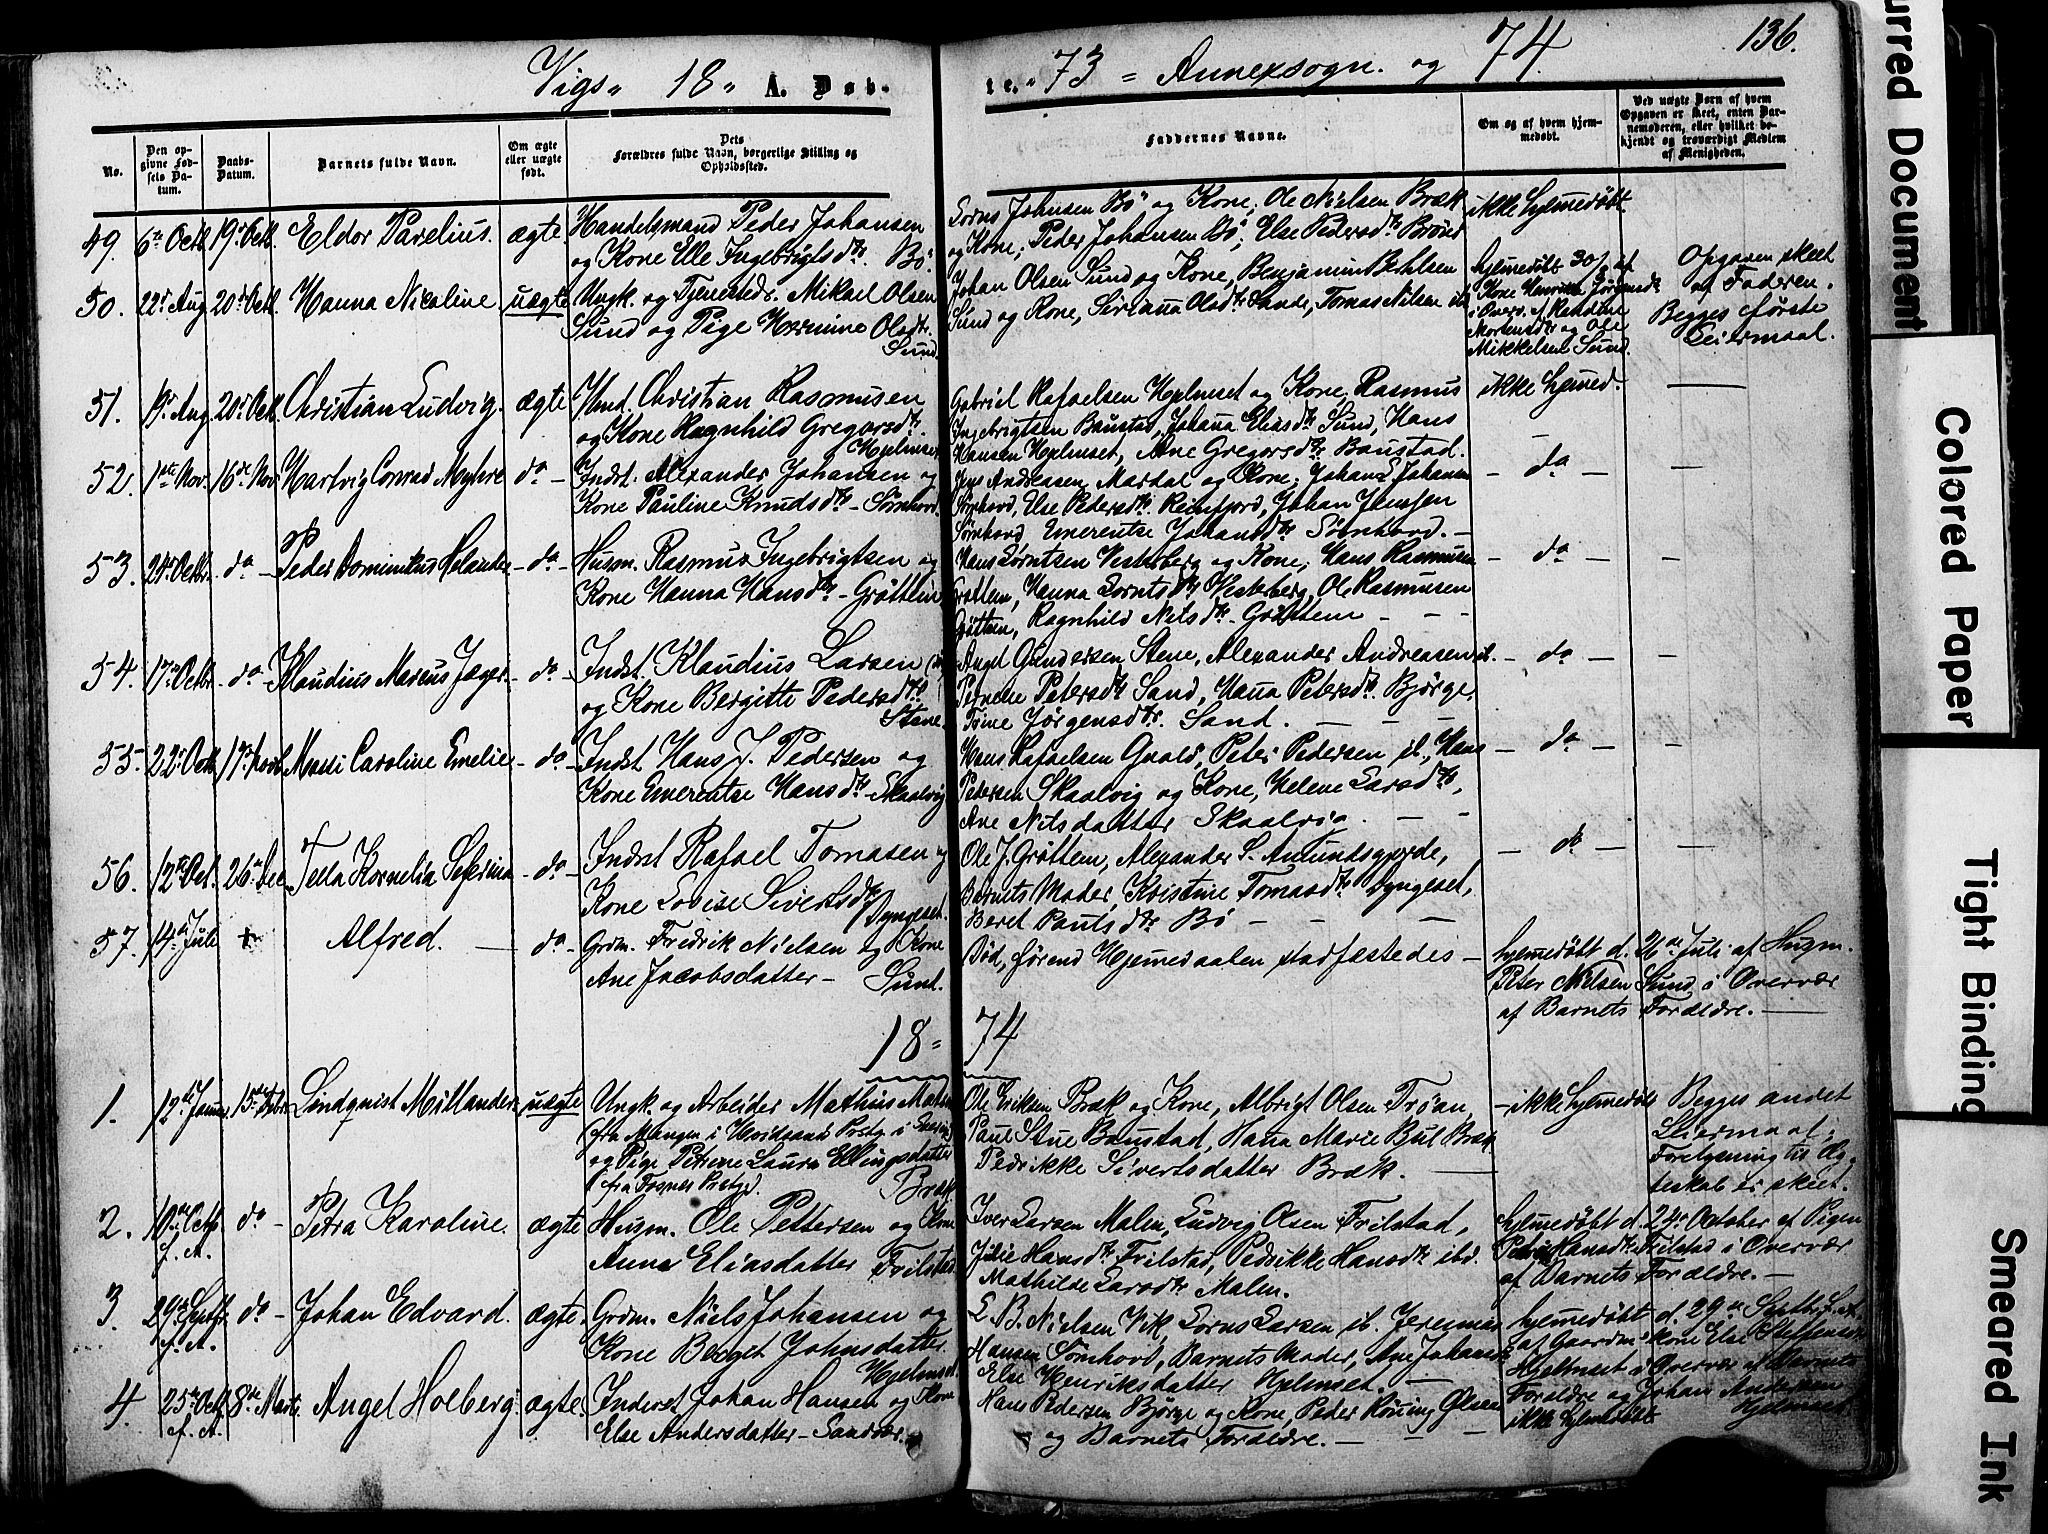 Vigs 18 A. Døb-
te. 73 = Annexsogn. og 74.
136.
No.
Den op-
givne Fød-
sels Da-
tum.
Daabs-
Datum.
Barnets fulde Navn.
Om ægte
eller uægte
født.
Dets
Forældres fulde Navn, borgerlige Stilling og
Opholdssted.
Faddernes Navne.
Om og af hvem hjem-
medøbt.
Ved uægte Børn af hvem
Opgaven er skeet, enten Bar-
nemoderen, eller hvilket be-
kjendt og troværdigt Medlem
af Menigheden.
49. 6te Octb. 19de Octb. Eldor Parelius. ægte. Handelsmand Peder Johansen
og Kone Elle Ingebrigtsdtr. Bö.
Lorns Johnsen Bö og Kone, Ole Nielsen Bræk
og Kone, Peder Johansen Bö, Else Pedersdtr
ikke hjemedøbt.
50. 22de Aug 20de Octb. Hanna Nicoline uægte Ungk. og Tjenestedr. Mikael Olsen
Sund og Pige Hermine Olsdtr.
Sund.
Johan Olsen Sund og Kone, Benjamin
Sund og Kone, Siriana Olsdtr. Sande, Tomas Nilsen ib.
hjemedöbt 30/8 af
Kone Henrikke Jörgensdtr
i Overv. af
Mortensdtr og Ole
Mikkelsen Sund.
Opgaven skeet
af Faderen.
Begges første
Leiermaal.
51. 19de Aug 20de Octb. Christian Ludvig. ægte Christian Rasmusen
og Kone Ragnhild Gregorsdtr.
Hjelmset
Gabriel Rafaelsen Hjelmset og Kone, Rasmus
Ingebrigtsen Baustad, Johana Eliasdtr Sund, Hans
Hansen Hjelmset, Ane Gregorsdtr Baustad.
ikke hjemed.
52. 1ste Nov. 16de Nov Hartvig Conrad Myhre do Indst. Alexander Johansen og
Kone Pauline Knudsdtr - Sörnhovd.
Jens Andreasen Mardal og Kone, Johan L Johansen
Sörnhovd, Else Pedersdtr Reinfjord, Johan Jensen
Sörnhovd, Emerentse Johansdtr Sörnhovd. -
- do -
53. 24de Octbr. do - Peder Dominikus Helander - do - Husm. Rasmus Ingebrigtsen og
Kone Hanna Hansdtr - Gröttem
Hans Lorntsen Vesterberg og Kone, Hans Rasmusen
Gröttem, Hanna Lorntsdtr Vesterberg, Ole Rasmusen
Gröttem, Ragnhild Nilsdtr - Gröttem - -
- do -
54. 17de Octbr. do - Klaudius Marcus Jæger. - do - Indst. Klaudius Larsen
og Kone Bergitte Pedersdtr
Stene.
Angel Gundersen Stene, Alexander Andreasen ib.
Pernelle Petersdtr Sand, Hana Petersdtr. Bjørge,
Trine Jørgensdtr. Sand. - - -
- do -
55. 22de Octb 17de Novb Massi Caroline Emelie - do - Indst. Hans J. Pedersen og
Kone Emerentse Hansdtr - Skaalvig
Hans Rafaelsen Peter Pedersen ib., Hans
Pedersen Skaalvig og Kone, Helene Larsdtr,
Ane Nilsdatter Skaalvig. - -
- do -
56. 12te Oct. 26de Dec Tella Kornelia Seferina - do - Indst Rafael Tomasen og
Kone Lovise Sivertsdtr
Dyngeset.
Ole J. Gröttem, Alexander S. Amundsgjerde,
Barnets Moder, Kristine Tomasdtr Dyngeset,
Beret Paulsdtr Bö - - -
- do -
57. 14de Juli + Alfred. - do - Grdm. Fredrik Nielsen og Kone
Ane Jacobsdatter - Sund.
Död, förend Hjemedaaben stadfæstedes -
hjemedöbt d. 26de Juli af Husm.
Peter Nielsen Sund i Overvær
af Barnets Forældre. -
18 = 74
1. 12te Januar 15de Febr Lindqvist uægte Ungk. og Arbeider Mathias
fra Mangen i Hvidsand Prstg. i Sverrig
og Pige Petrine Laura Ellingsdatter
fra Fosnes Prstgd. Bræk.
Ole Eriksen Bræk og Kone, Albrigt Olsen Tröan,
Paul Stue Baustad, Hana Marie Bul Bræk
Pedrikke Sivertsdatter Bræk. -
- ikke hjemedøbt
Begges andet
Leiermaal;
til Æg-
teskab er skeet.
2. 10de Octb. do -
f. A.
Petra Karoline. ægte Husm. Ole Pettersen og Kone
Anna Eliasdatter Frilstad
Iver Larsen Malm, Ludvig Olsen Frilstad,
Julie Hansdtr Frilstad, Pedrikke Hansdtr ibd.
Mathilde Larsdtr Malm.
hjemedöbt d. 24de October af Pigen
Hansdtr Frilstad i Overvær
af Barnets Forældre. -
3. 29de Septb. do -
f. A.
Johan Edvard. ægte. Grdm. Niels Johansen og
Kone Berget Johnsdatter
Hjelmset.
L. B. Nielsen Vik, Lorns Larsen ib. Jeremias
Hansen Sörnhovd, Barnets Moder, Ane Johansdtr
Else Henriksdatter Hjelmset. -
hjemedöbt d. 29de Septb. f. A.
af Gaardm. kone Else Steffensdtr
Hjelmset i Overvær af Barnets
Forældre og Johan Andersen
Hjelmset.
4. 25de Octb 8de Marts
f. A.
Angel Holberg ægte. Inderst Johan Hansen og Kone
Else Andersdatter - Sandvær.
Hans Pedersen Bjørge og Kone, Peder Röning Olsen
og Barnets Forældre. - - -
ikke hjemedöbt
urred Document
Colored Paper
Tight Binding
Smeared Ink